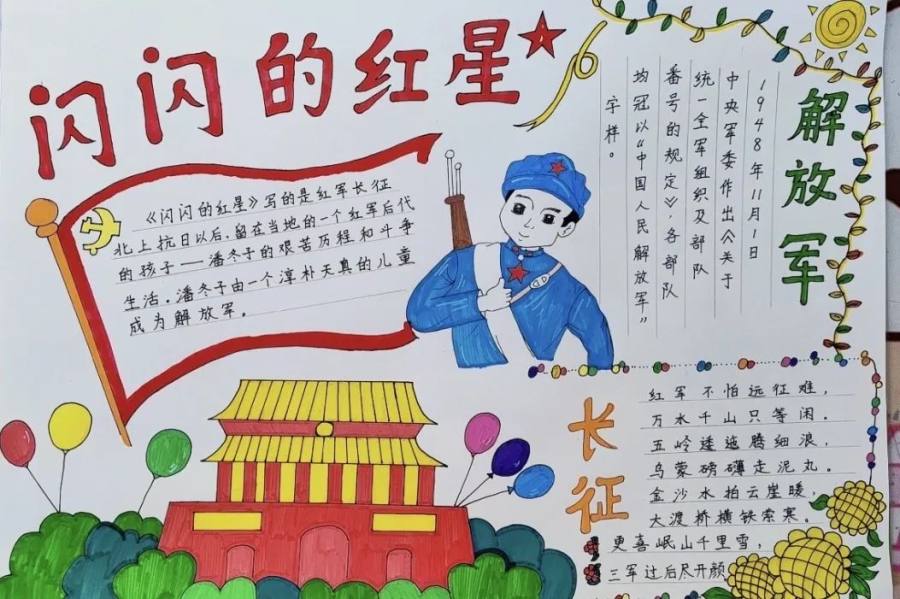 闪闪的红星
《闪闪的红星》写的是红军长征
北上抗日以后，留在当地的一个红军后代
的孩子——潘冬子的艰苦历程和斗争
生活．潘冬子由一个淳朴天真的儿童
成为解放军。
解放军
1948年11月1日
中央军委作出《关于
统一全军组织及部队
番号的规定》，各部队
均冠以“中国人民解放军”
字样。
长征
红军不怕远征难，
万水千山只等闲。
五岭逶迤腾细浪，
乌蒙磅礴走泥丸。
金沙水拍云崖暖，
大渡桥横铁索寒。
更喜岷山千里雪，
三军过后尽开颜